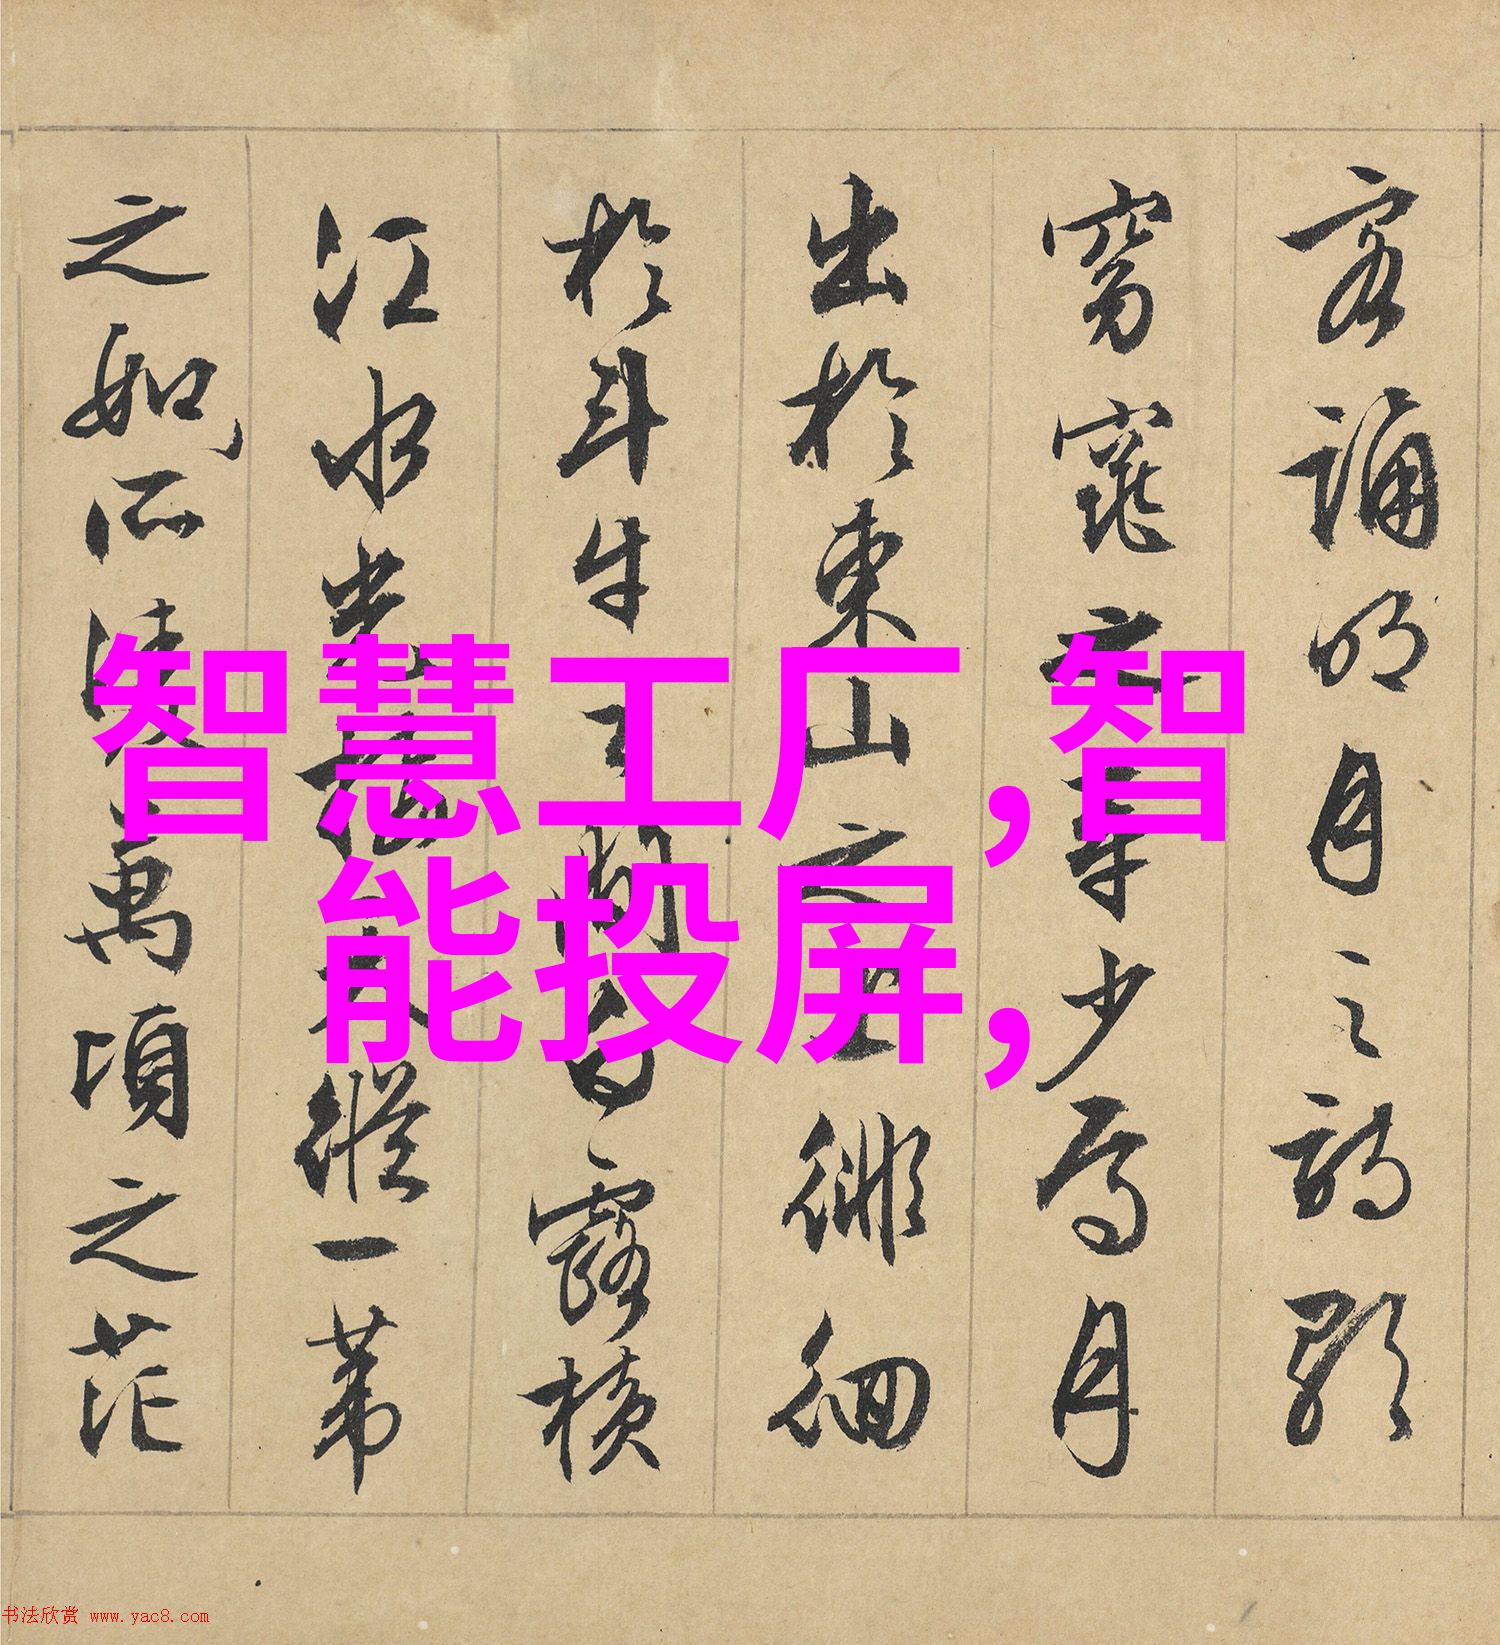 客誦明月之詩歌
窈窕之章少焉月
出於東山之上徘徊
於斗牛之間白露橫
江水光接天縱一葦
之如所淩萬頃之茫
智慧工厂,智
能投屏,
书法欣赏 www.yac8.com